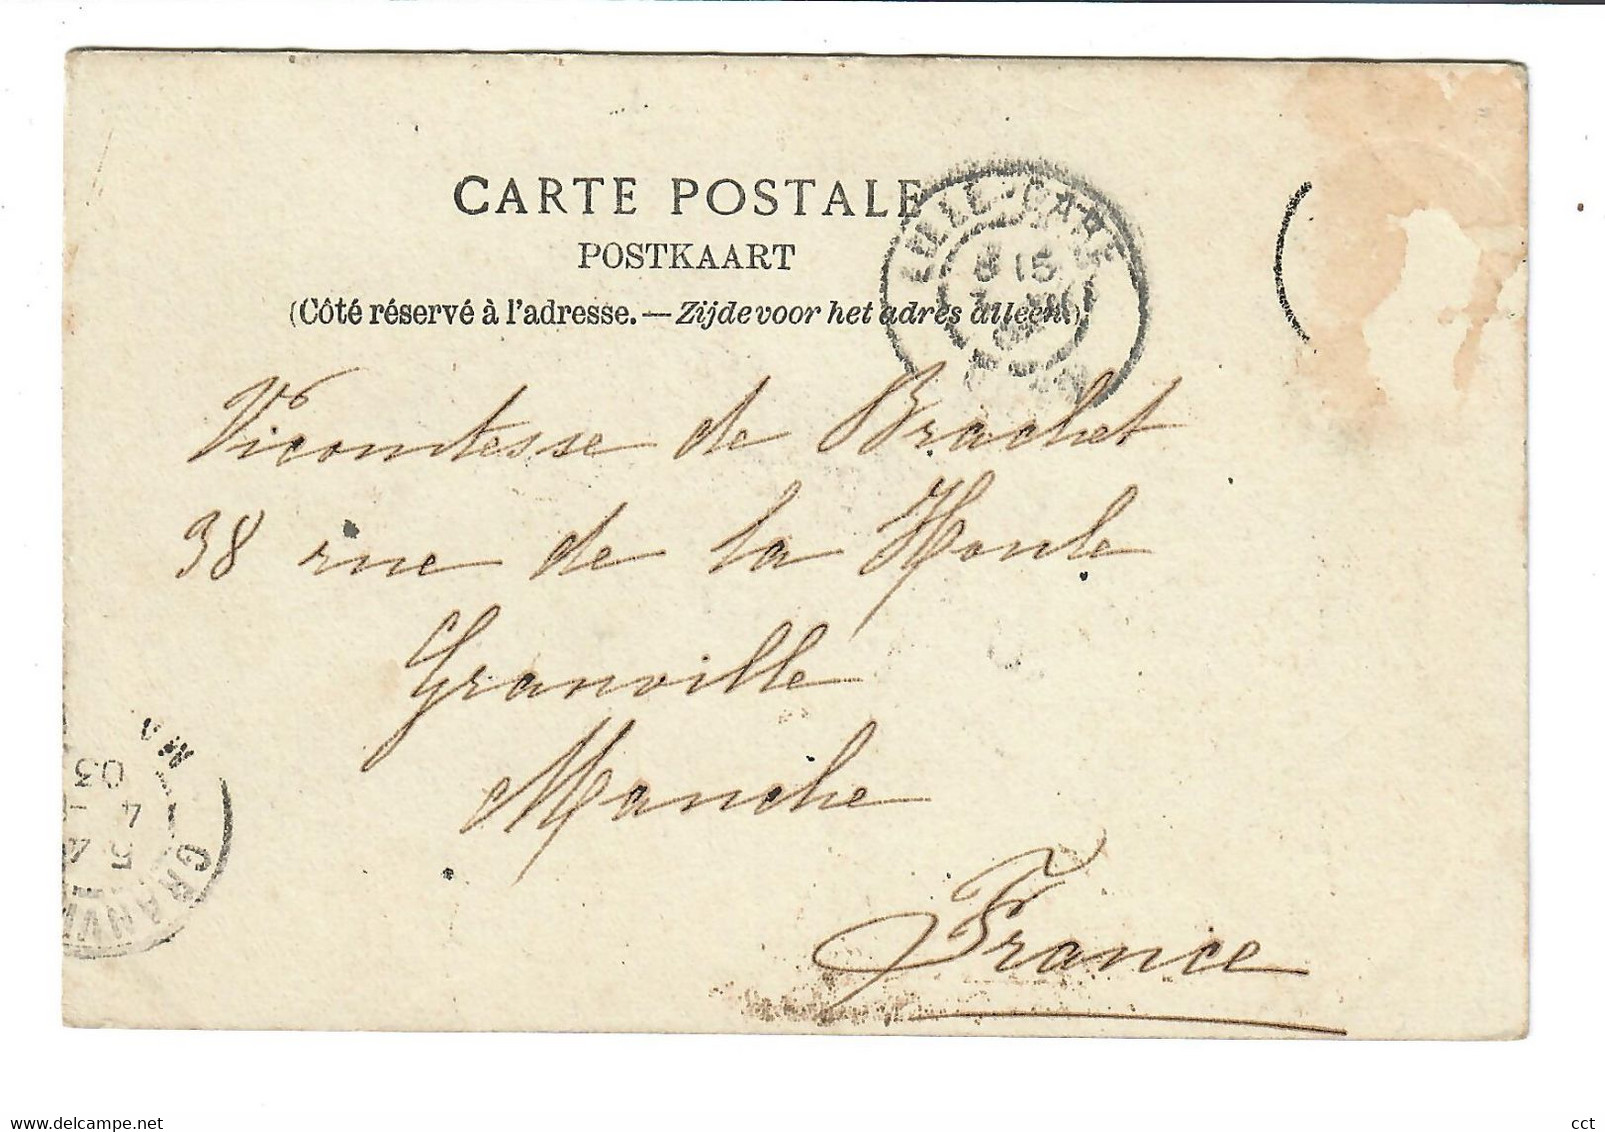 CARTE POSTALE
POSTKAART
(Côté réservé à l'adresse.—Zijde voor het adres alleen.)
LILLE-GARE
8 15
Vicomtesse de Brachet
38 rue de la Houle
Granville
Manche
France
GRANVI
5 4
4
03
delcampe.net
cct